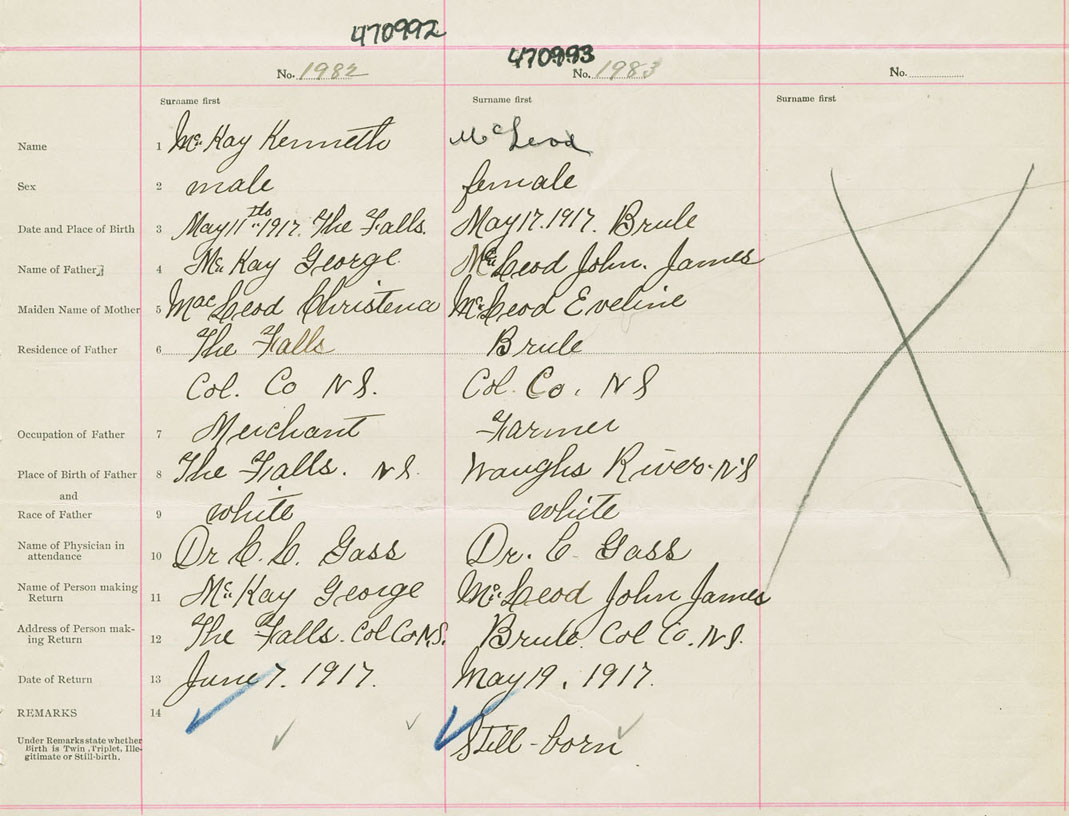 470992
470993
No. 1982 No. 1983 No.
Surname first Surname first Surname first
Name 1 McKay Kenneth McLeod
Sex 2 male female
Date and Place of Birth 3 May 11th 1917. The Falls. May 17. 1917. Brule
Name of Father 4 McKay George McLeod John. James
Maiden Name of Mother 5 MacLeod Christena McLeod Eveline
Residence of Father 6 The Falls Brule
Col. Co N S. Col. Co. N S
Occupation of Father 7 Merchant Farmer
Place of Birth of Father 8 The Falls. N S. Waughs River. N S
and
Race of Father 9 white white
Name of Physician in
attendance 10 Dr C. C. Gass Dr. C Gass
Name of Person making
Return 11 McKay George McLeod John James
Address of Person mak-
ing Return 12 The Falls. Col Co N.S. Brule. Col Co. N.S.
Date of Return 13 June 7. 1917. May 19. 1917.
REMARKS 14
Under Remarks state whether
Birth is Twin, Triplet, Ille-
gitimate or Still-birth.
Still-born